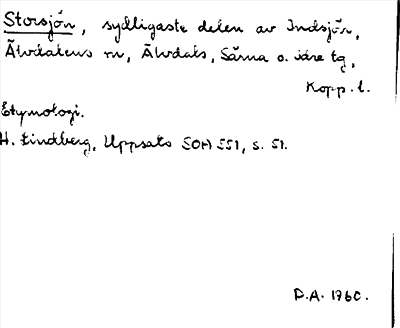 Storsjön, sydligaste delen av Indsjön,
Älvdalens sn, Älvdals, Särna o. Idre tg,
Kopp. l.
Etymologi.
H. Lindberg, Uppsats SOH 551, s. 51.
D.A. 1960.